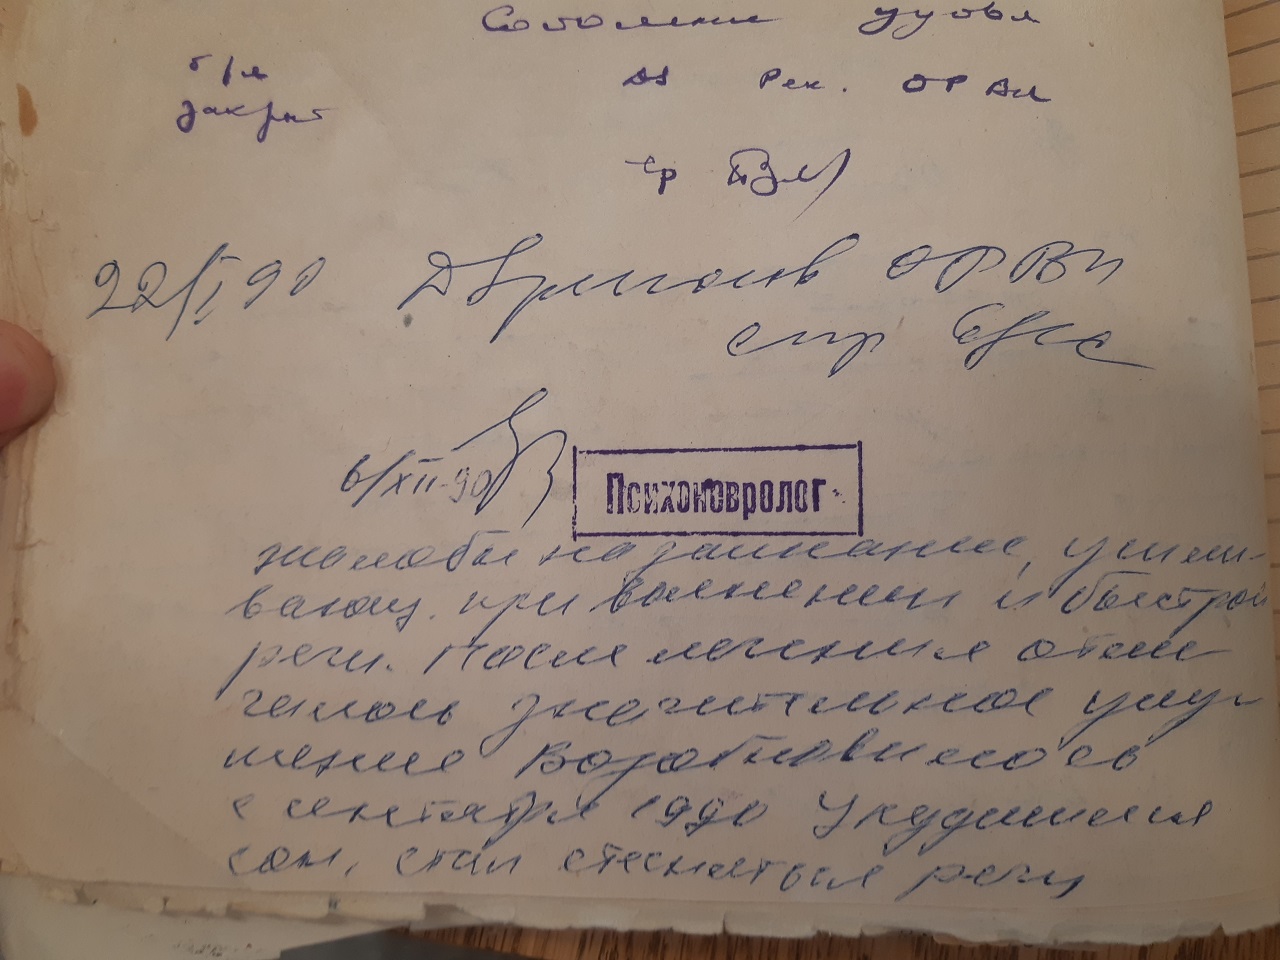 Состояние удовл
б/л
закрыт
DS Рек. ОРВи
22/I 90 ОРВИ
спр
6/XII-90
Психоневролог
жалобы на заикание, усили-
вающ. при волнении и быстрой
речи. После лечения отме
чалось значительное улуч
шение Возобновилось
с сентября 1990 Ухудшился
сон, стал стесняться речи